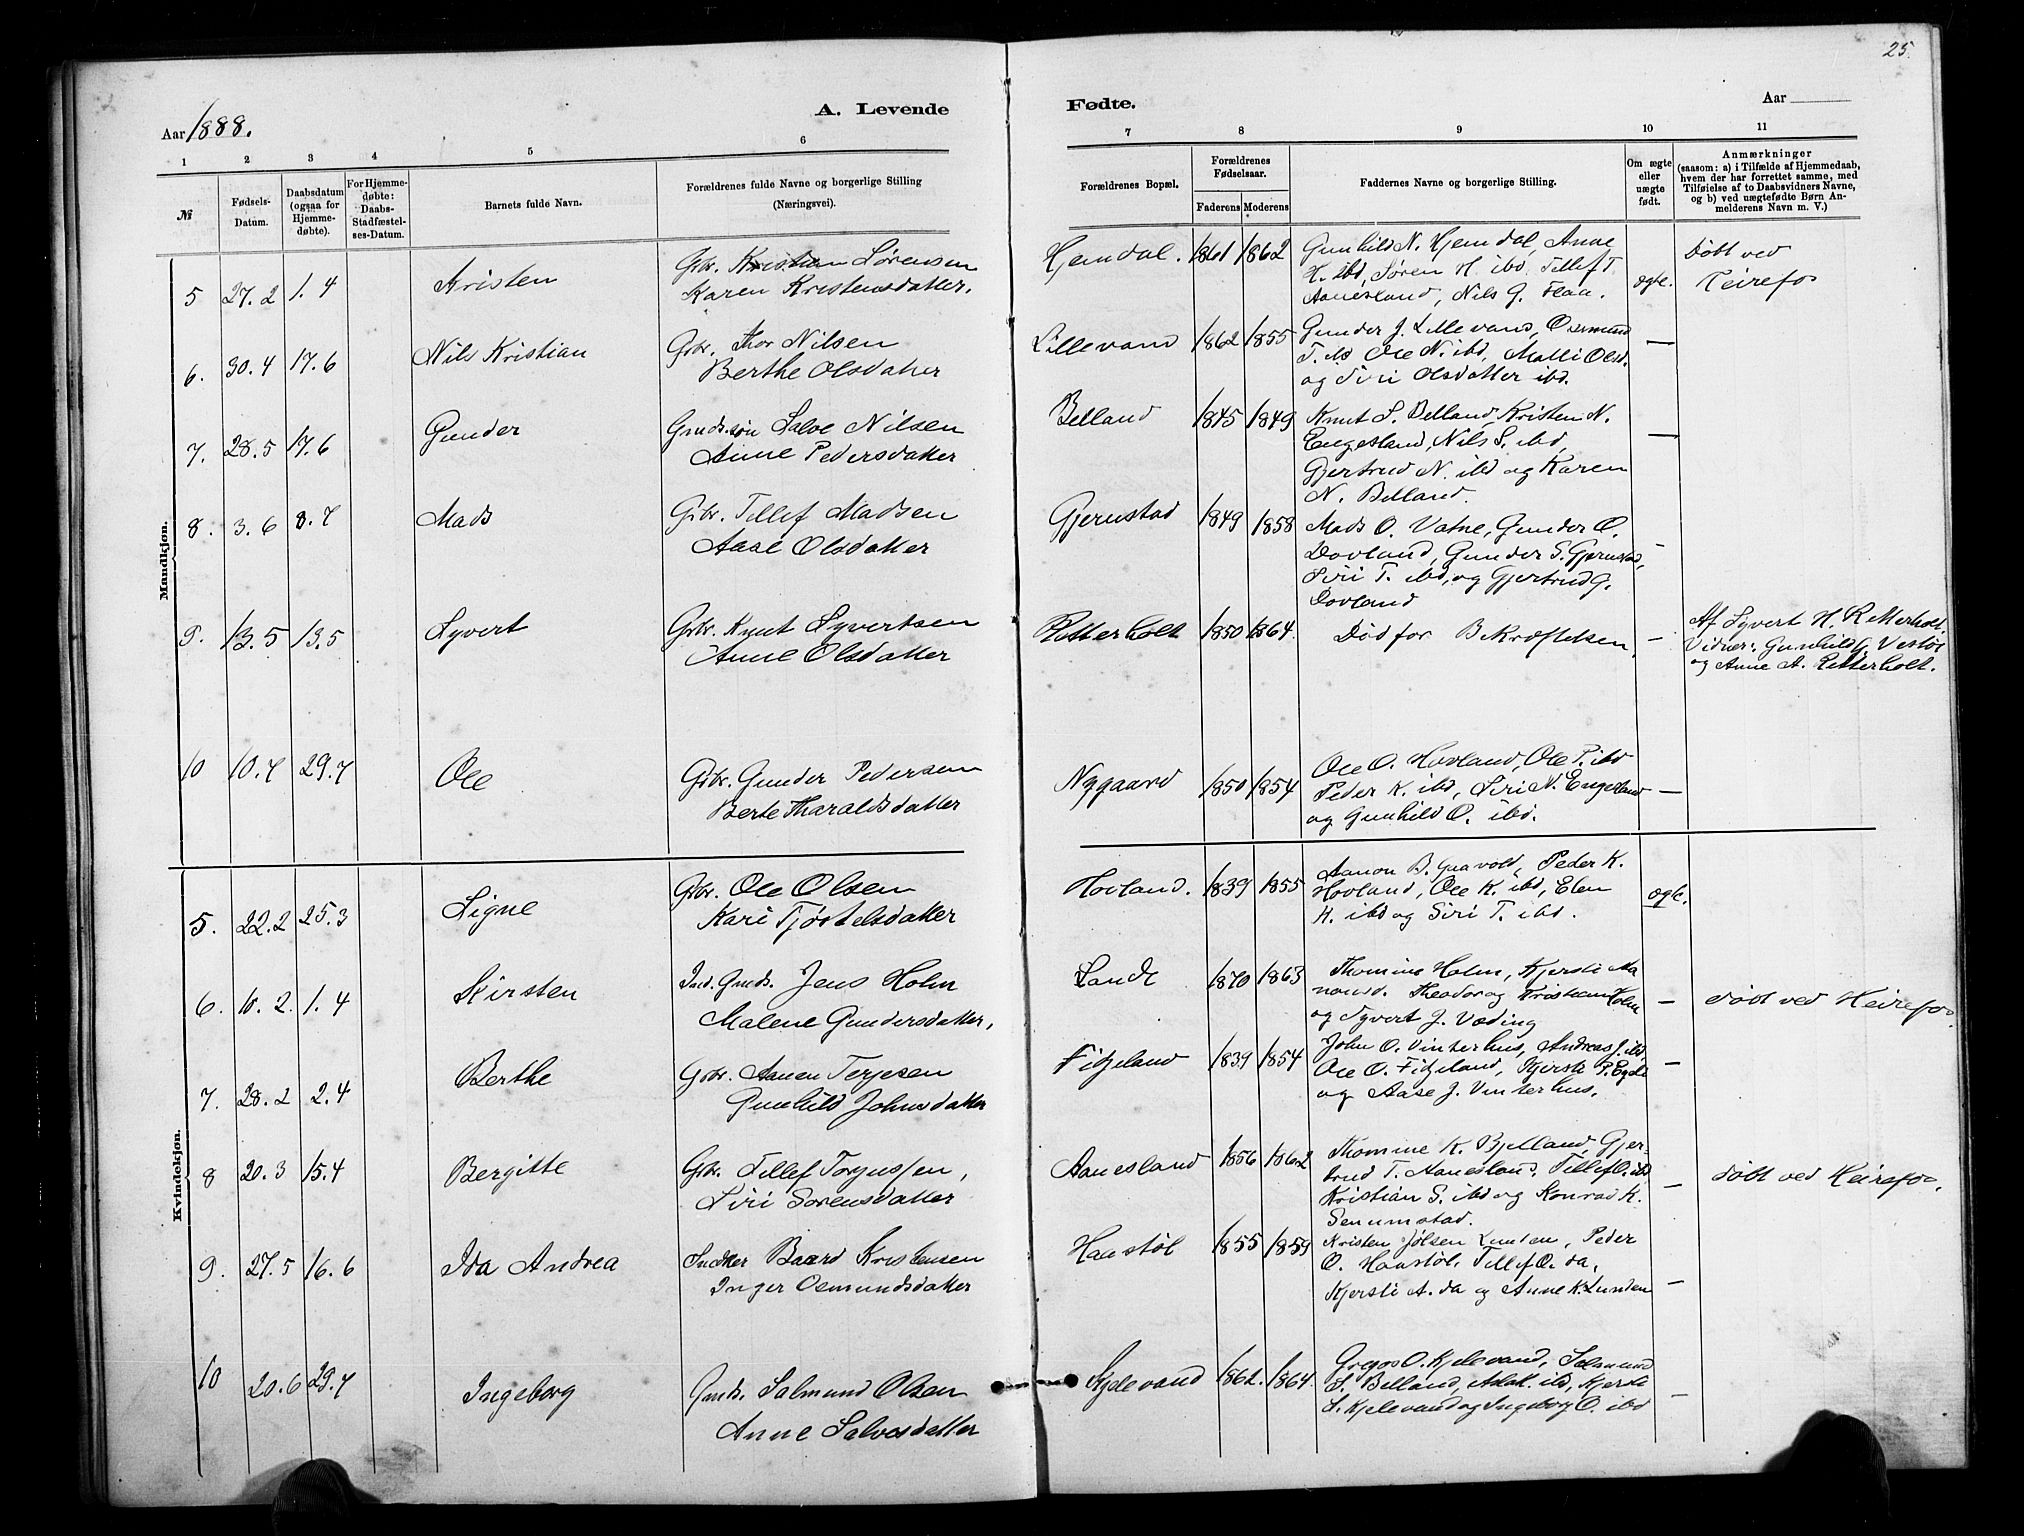 25.
Aar 1888.
A. Levende
Fødte.
Aar
1 2 3 4 5 6 7 8 9 10 11
№
Fødsels-
Datum.
Daabsdatum
(ogsaa for
Hjemme-
døbte).
For Hjemme-
døbte:
Daabs-
Stadfæstel-
ses-Datum.
Barnets fulde Navn.
Forældrenes fulde Navne og borgerlige Stilling
(Næringsvei).
Forældrenes Bopæl.
Forældrenes
Fødselsaar.
Faderens Moderens
Faddernes Navne og borgerlige Stilling.
Om ægte
eller
uægte
født.
Anmærkninger
(saasom: a) i Tilfælde af Hjemmedaab,
hvem der har forrettet samme, med
Tilføielse af to Daabsvidners Navne,
og b) ved uægtefødte Børn An-
melderens Navn m. V.)
Mandkjøn.
5 27.2 1.4 Kristen
Gbr. Kristian Sørensen
Karen Kristensdatter.
Hjemdal. 1861 1862
Gunhild N. Hjemdal, Anne
H. ibd, Søren H. ibd, Tellef T.
Aanesland, Nils G. Flaa.
ægte.
Døbt ved
Heirefos
6. 30.4 17.6 Nils Kristian
Gbr. Thor Nilsen
Berthe Olsdatter
Lillevand 1862 1855
Gunder J. Lillevand, Osmund
T. ibd, Ole N. ibd, Malli Olsd.
og Siri Olsdatter ibd.
—
7. 28.5 17.6 Gunder
Gmds.søn Salve Nilsen
Anne Pedersdatter
Belland 1845 1849
Knut S. Belland, Kristen N.
Engesland, Nils S. ibd,
Gjertrud N. ibd og Karen
N. Belland.
—
8. 3.6 8.7 Mads
Gbr. Tellef Madsen
Aase Olsdatter
Gjernstad 1849 1858
Mads O. Vatne, Gunder O.
Dovland, Gunder S. Gjernstad,
Siri T. ibd, og Gjertrud G.
Dovland
—
9. 13.5 13.5 Syvert
Gbr. Knut Syvertsen
Anne Olsdatter
Retterholt 1850 1864.
Død før Bekræftelsen.
—
Af Syvert H. Retterholt.
Vidner: Gunhild G. Vestøl
og Anne A. Retterholt.
10 10.7 29.7 Ole
Gbr. Gunder Pedersen
Berte Tharaldsdatter
Nygaard 1850 1854
Ole O. Hovland, Ole P. ibd
Peder K. ibd, Siri N. Engesland
og Gunhild O. ibd.
—
Kvindekjøn.
5. 22.2 25.3 Signe
Gbr. Ole Olsen
Kari Tjøstelsdatter
Hovland. 1839 1855
Aanon B. Guavold, Peder K.
Hovland, Ole K. ibd, Elen
K. ibd og Siri T. ibd.
ægte.
6. 10.2. 1.4 Kirsten
Ind. Gmds. Jens Holm
Malene Gundersdatter.
Sande 1870 1863
Thomine Holm, Kjersti Aa-
nonsd. Theodor og Kristian Holm
og Syvert J. Væding
—
døbt ved Heirefos.
7. 28.2 2.4 Berthe
Gbr. Aanen Terjesen
Gunhild Johnsdatter
Fidjeland 1839 1854
John O. Vinterhus, Andreas J. ibd,
Ole O. Fidjeland, Kjersti P. Egde
og Aase J. Vinterhus.
—
8 20.3 15.4 Bergitte
Gbr. Tellef Torjussen,
Siri Sorensdatter
Aanesland 1856 1862
Thomine K. Bjelland, Gjer-
trud T. Aanesland. Tellef O. ibd
Kristian S. ibd og Konrad K.
Senumstad.
—
døbt ved Heirefos.
9. 27.5 16.6 Ida Andrea
Inder Baard Kristensen
Inger Osmundsdatter
Haustøl 1855 1859
Kristen Jølsen Lunden, Peder
O. Haustøl, Tellef O. da,
Kjersti A. da og Anne K. Lunden
—
10 20.6 29.7 Ingeborg
Gmds. Salmund Olsen
Anne Salvesdatter
Kjelevand 1862. 1864.
Gregos O. Kjelevand, Salmund
S. Belland, Aslak ibd, Kjersti
S. Kjelevand og Ingeborg O. ibd
—